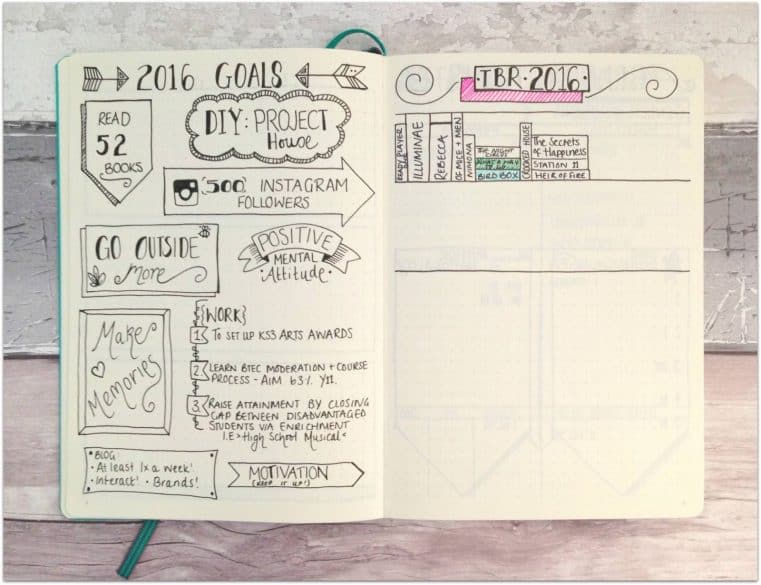 2016 GOALS
READ
52
BOOKS
DIY: PROJECT
House
500 INSTAGRAM
FOLLOWERS
GO OUTSIDE
More
POSITIVE
MENTAL
Attitude
Make
Memories
{WORK}
1. TO SET UP KS3 ARTS AWARDS
2. LEARN BTEC MODERATION + COURSE
PROCESS - AIM 63% Y11.
3. RAISE ATTAINMENT BY CLOSING
GAP BETWEEN DISADVANTAGED
STUDENTS VIA ENRICHMENT
I.E > High School Musical <
BLOG:
• At least 1x a week!
• Interact! • Brands!
MOTIVATION
(KEEP IT UP!)
TBR • 2016
READY PLAYER
ILLUMINAE
REBECCA
OF MICE + MEN
NIMONA
THE NIGHT
CIRCUS
BIRD BOX
CROOKED HOUSE
The Secrets
of Happiness
STATION 11
HEIR OF FIRE